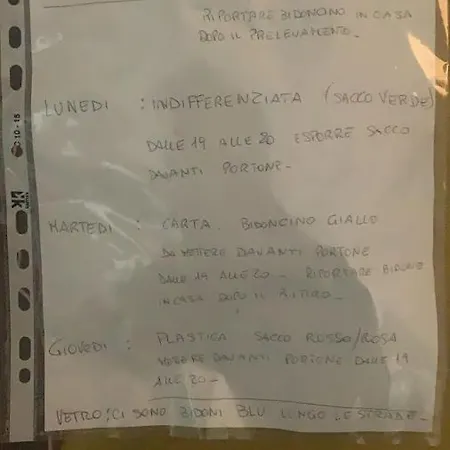 RIPORTARE BIDONCINO IN CASA
DOPO IL PRELEVAMENTO.
LUNEDI : INDIFFERENZIATA (SACCO VERDE)
DALLE 19 ALLE 20 ESPORRE SACCO
DAVANTI PORTONE.
MARTEDI : CARTA BIDONCINO GIALLO
DA METTERE DAVANTI PORTONE
DALLE 19 ALLE 20 - RIPORTARE BIDONE
IN CASA DOPO IL RITIRO.
GIOVEDI : PLASTICA SACCO ROSSO/ROSA
METTERE DAVANTI PORTONE DALLE 19
ALLE 20-
VETRO: CI SONO BIDONI BLU LUNGO LE STRADE-
10-15